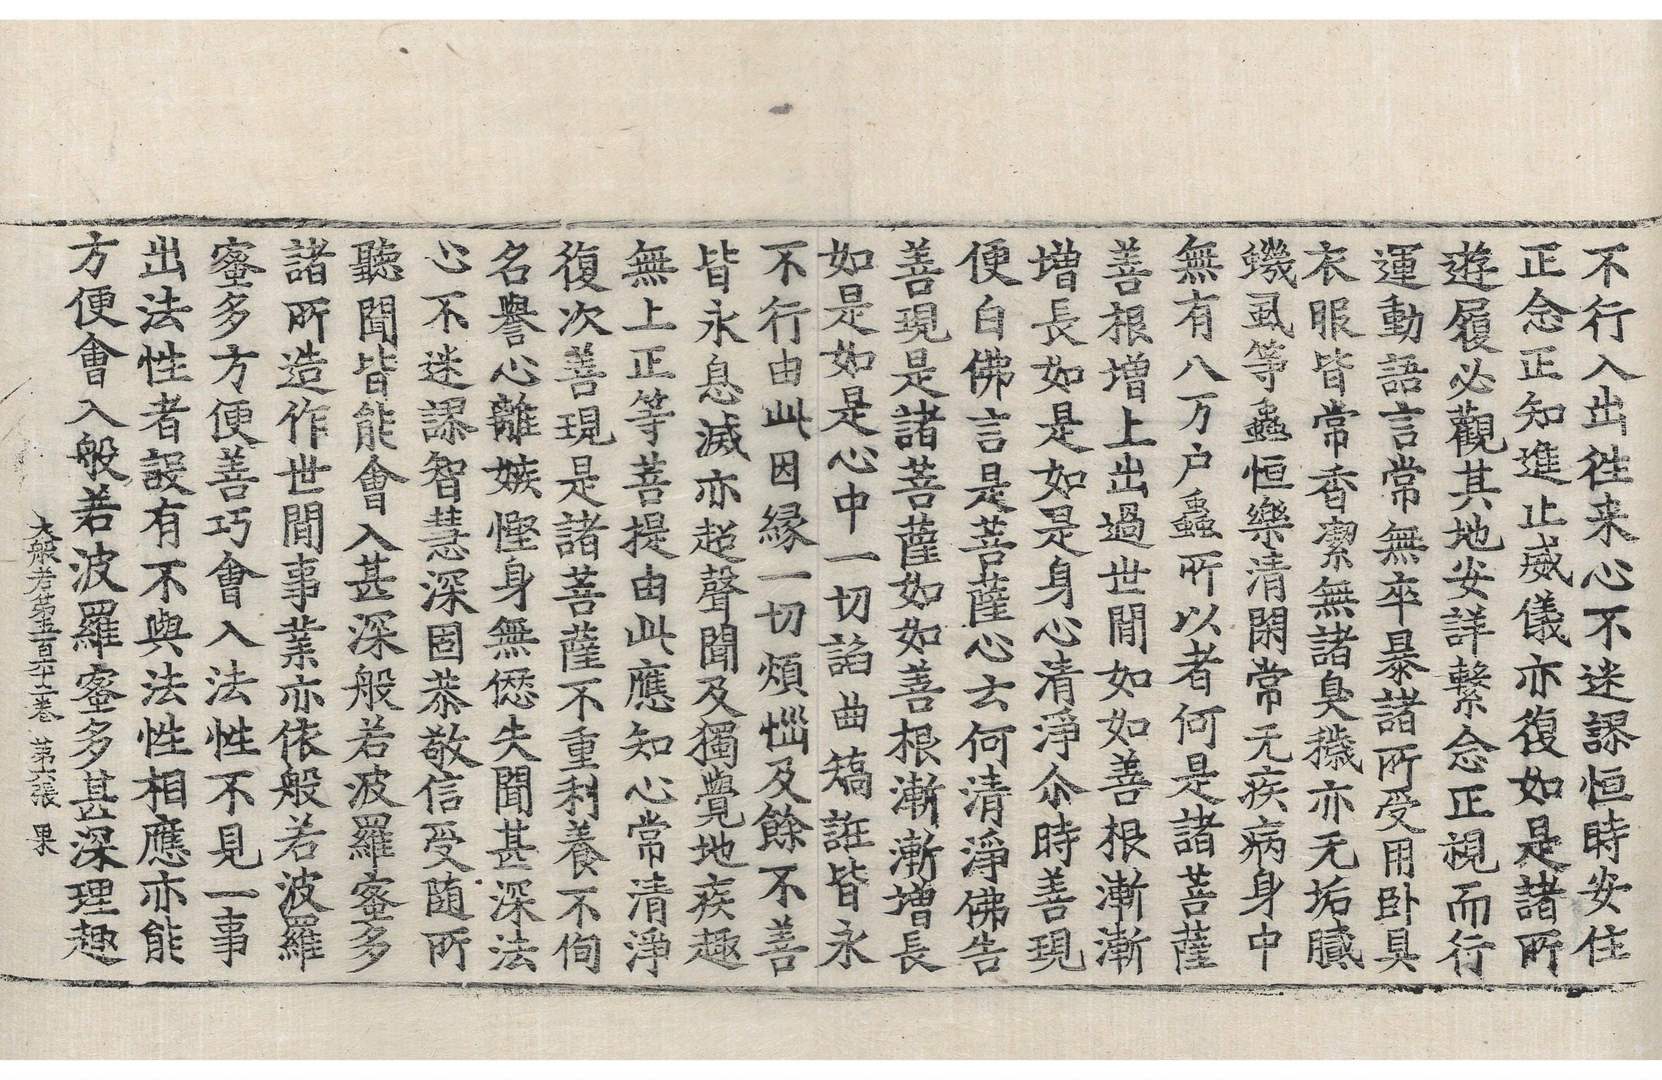 不行入出徃来心不迷謬恒時安住
正念正知進止威儀亦復如是諸所
遊履必觀其地安詳繫念正視而行
運動語言常無卒暴諸所受用臥具
衣服皆常香潔無諸臭穢亦无垢膩
蟣虱等蟲恒樂清閑常无疾病身中
無有八万户蟲所以者何是諸菩薩
善根增上出過世間如如善根漸漸
增長如是如是身心清淨尒時善現
便白佛言是菩薩心云何清淨佛告
善現是諸菩薩如如善根漸漸增長
如是如是心中一切諂曲矯誑皆永
不行由此因緣一切煩惱及餘不善
皆永息滅亦超聲聞及獨覺地疾趣
無上正等菩提由此應知心常清淨
復次善現是諸菩薩不重利養不徇
名譽心離嫉慳身無愆失聞甚深法
心不迷謬智慧深固恭敬信受随所
聽聞皆能會入甚深般若波羅蜜多
諸所造作世間事業亦依般若波羅
蜜多方便善巧會入法性不見一事
出法性者設有不與法性相應亦能
方便會入般若波羅蜜多甚深理趣
大般若第五百六十二卷 第六張 果